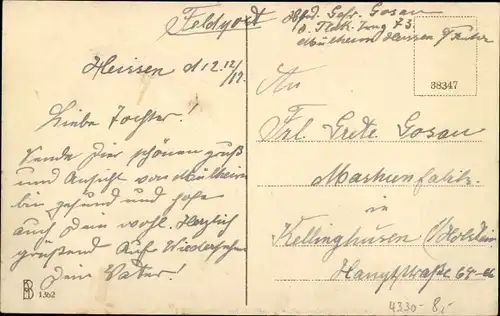 Feldpost
Abs. Gefr. Gosau
Flak. Zug 73.
Mülheim Heissen a/Ruhr
Heissen d 12.12/17.
38347
An
Liebe Tochter!
Frl. Grete Gosau
Sende Dir schönen Gruß
und Ansicht von Mülheim
Maschienfabrik.
bin gesund und hoffe
in
auch Dein wohl. Herzlich
Kellinghusen /Holstein
grüßend Auf Wiedersehn
Hauptstraße 64
Dein Vater!
1362
4330- 8,-